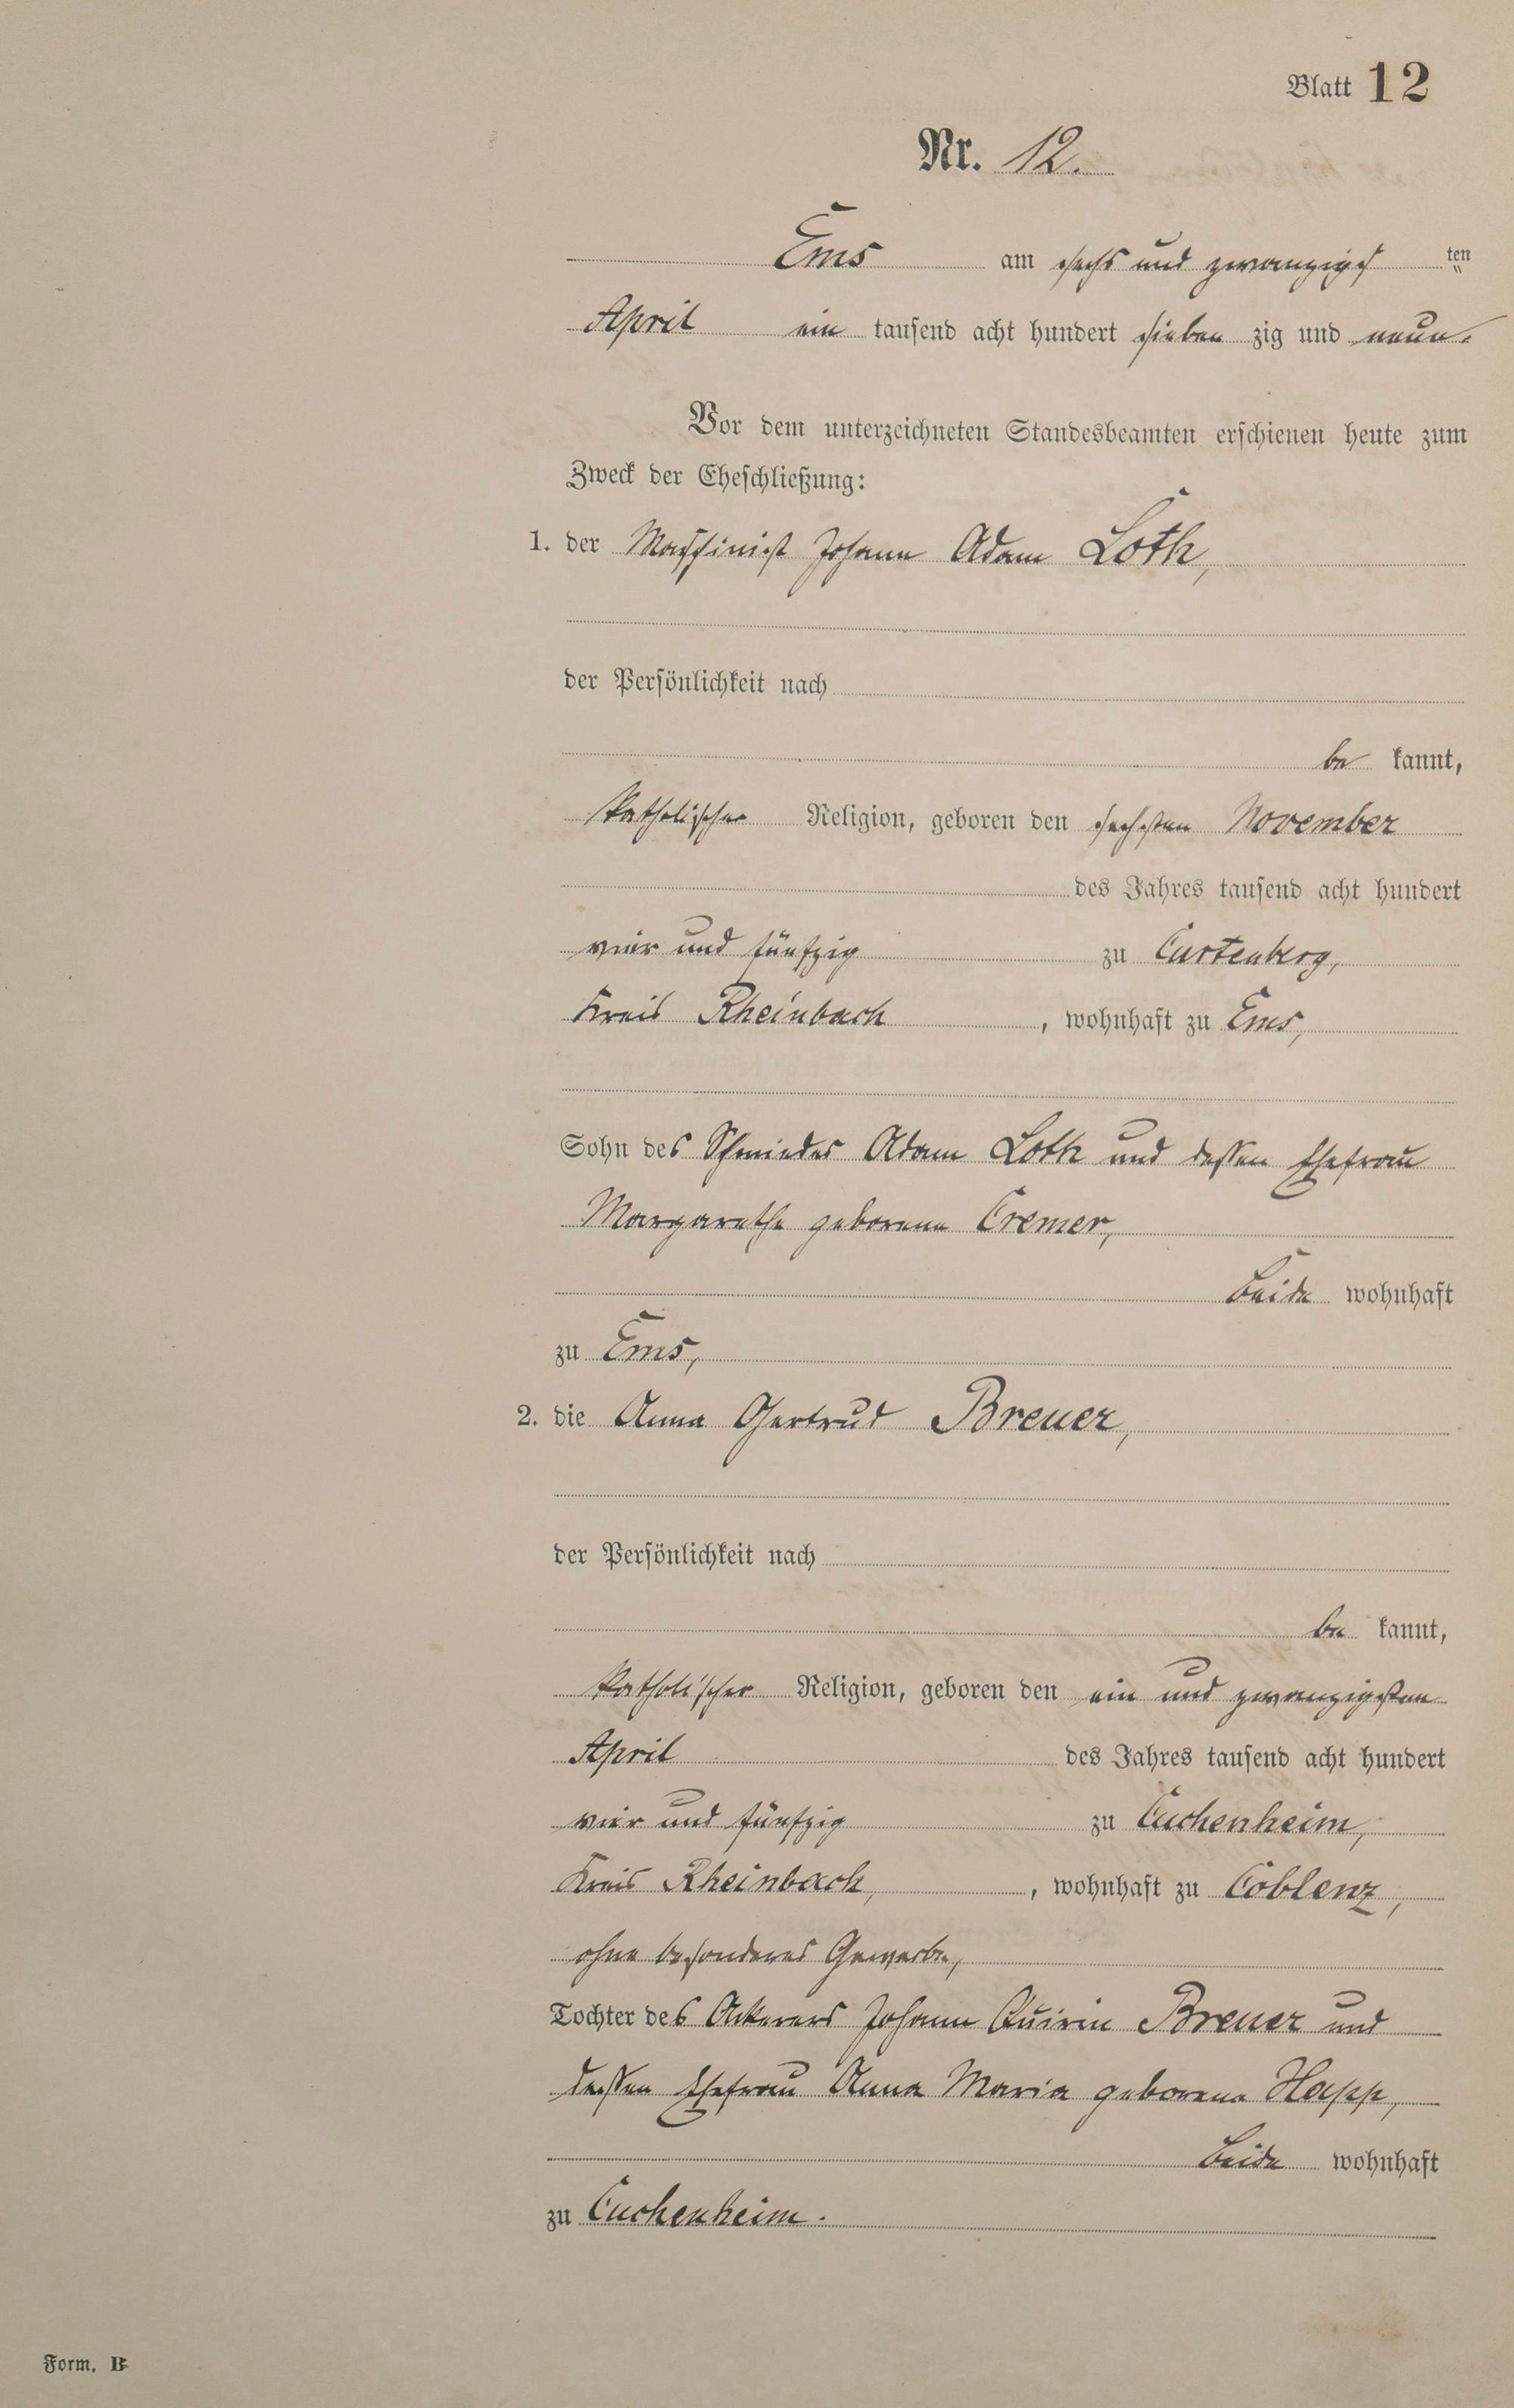 Blatt 12
Nr. 12.
Ems am sechs und zwanzigs ten
April ein tausend acht hundert sieben zig und neun.
Vor dem unterzeichneten Standesbeamten erschienen heute zum
Zweck der Eheschließung:
1. der Maschinist Johann Adam Loth,
der Persönlichkeit nach
be kannt,
katholischer Religion, geboren den sechsten November
des Jahres tausend acht hundert
vier und fünfzig zu Curtenberg,
Kreis Rheinbach, wohnhaft zu Ems,
Sohn des Schmiedes Adam Loth und dessen Ehefrau
Margarethe geborene Cremer,
beide wohnhaft
zu Ems,
2. die Anna Gertrud Breuer,
der Persönlichkeit nach
be kannt,
katholischer Religion, geboren den ein und zwanzigsten
April des Jahres tausend acht hundert
vier und fünfzig zu Cuchenheim,
Kreis Rheinbach, , wohnhaft zu Coblenz,
ohne besonderes Gewerbe,
Tochter des Ackerers Johann Quirin Breuer und
dessen Ehefrau Anna Maria geborene Happ,
beide wohnhaft
zu Cuchenheim.
Form. B